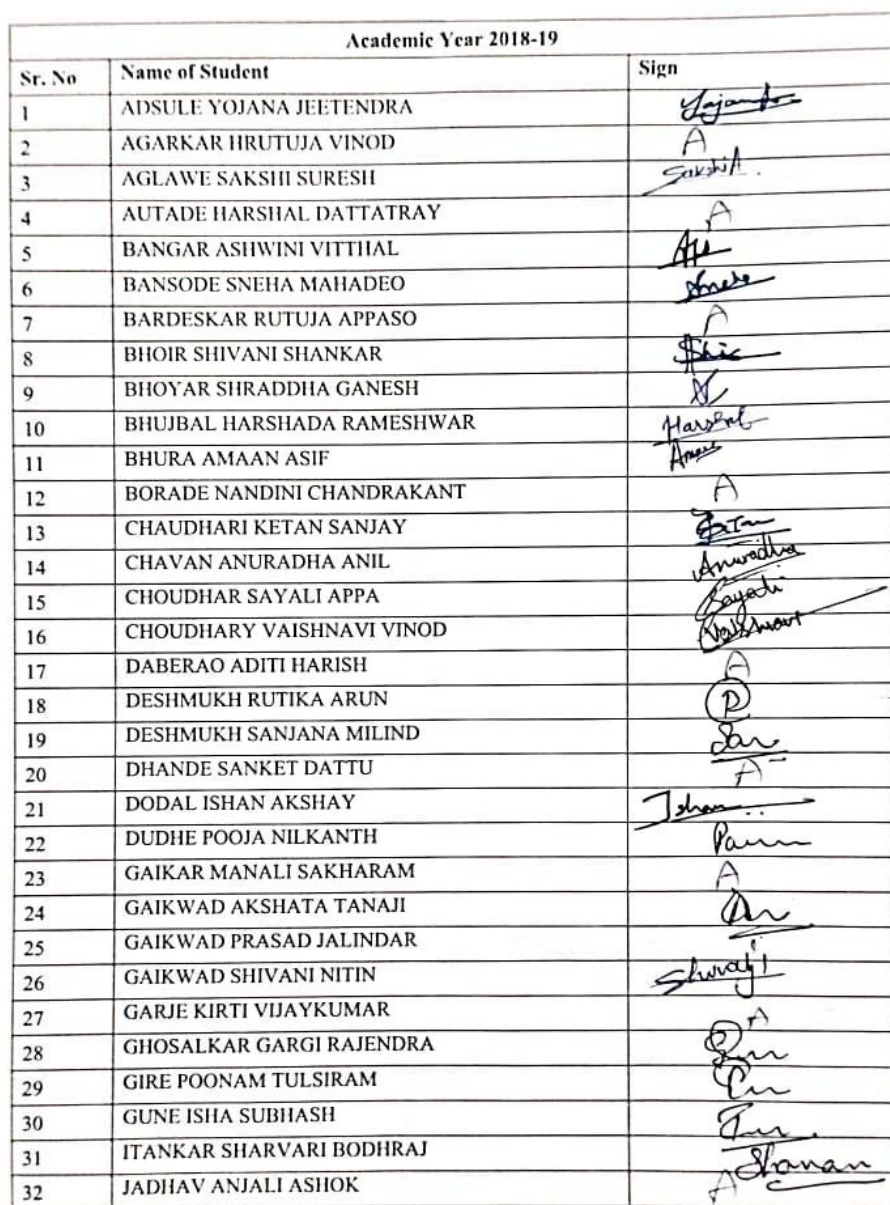 Academic Year 2018-19
Sr. No Name of Student Sign
1 ADSULE YOJANA JEETENDRA
2 AGARKAR HRUTUJA VINOD A
3 AGLAWE SAKSHI SURESH Sakshi A.
4 AUTADE HARSHAL DATTATRAY A
5 BANGAR ASHWINI VITTHAL
6 BANSODE SNEHA MAHADEO
7 BARDESKAR RUTUJA APPASO A
8 BHOIR SHIVANI SHANKAR
9 BHOYAR SHRADDHA GANESH
10 BHUJBAL HARSHADA RAMESHWAR
11 BHURA AMAAN ASIF
12 BORADE NANDINI CHANDRAKANT A
13 CHAUDHARI KETAN SANJAY
14 CHAVAN ANURADHA ANIL Anuradha
15 CHOUDHAR SAYALI APPA Sayali
16 CHOUDHARY VAISHNAVI VINOD
17 DABERAO ADITI HARISH A
18 DESHMUKH RUTIKA ARUN P
19 DESHMUKH SANJANA MILIND
20 DHANDE SANKET DATTU A
21 DODAL ISHAN AKSHAY Ishan
22 DUDHE POOJA NILKANTH
23 GAIKAR MANALI SAKHARAM A
24 GAIKWAD AKSHATA TANAJI
25 GAIKWAD PRASAD JALINDAR
26 GAIKWAD SHIVANI NITIN
27 GARJE KIRTI VIJAYKUMAR A
28 GHOSALKAR GARGI RAJENDRA
29 GIRE POONAM TULSIRAM
30 GUNE ISHA SUBHASH
31 ITANKAR SHARVARI BODHRAJ
32 JADHAV ANJALI ASHOK A